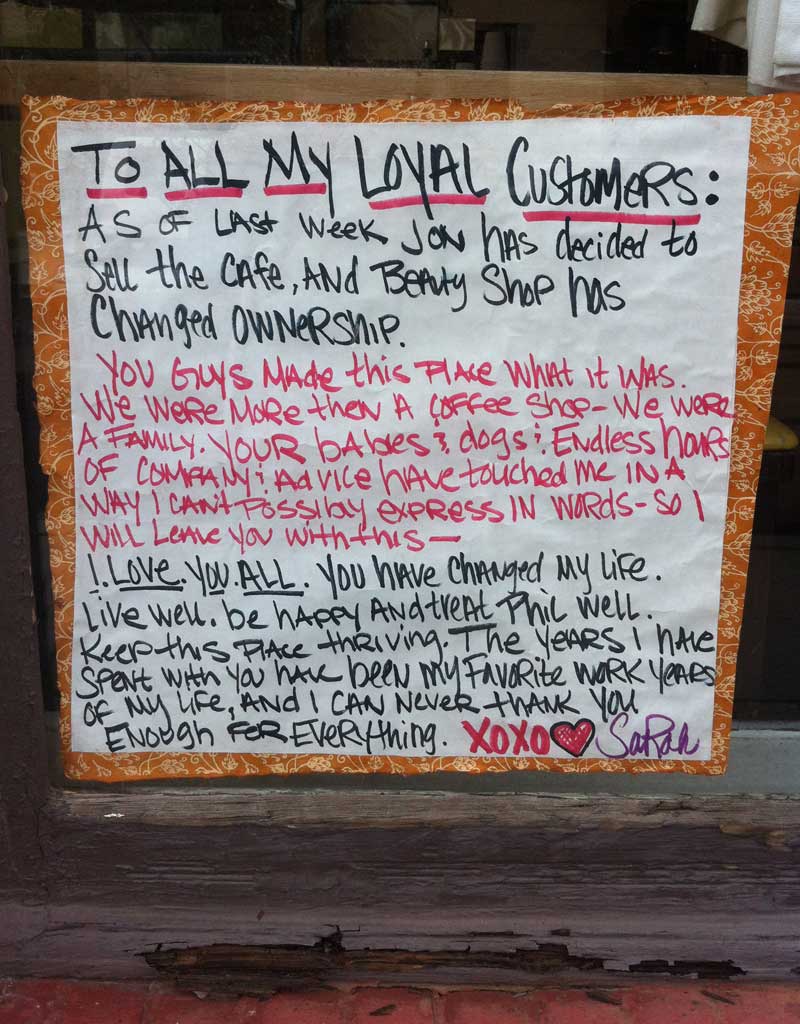 TO ALL MY LOYAL CUSTOMERS:
AS OF LAST WEEK JON HAS decided to
Sell the CAFE, AND BEAUTY SHOP has
Changed OWNERSHIP.
YOU GUYS MADE this PLACE WHAT IT WAS.
WE WERE MORE then A COFFEE SHOP- WE WERE
A FAMILY. YOUR babies & dogs & ENdless hours
OF COMPANY & Advice have touched Me IN A
WAY I CAN'T POSSIBLY EXPRESS IN WORDS- SO I
WILL LEAVE YOU With this —
I. LOVE. YOU. ALL. YOU HAVE CHANGED MY LIFE.
Live well. be hAPPY AND treAt Phil well.
KEEP this PLACE thriving. The YEARS I have
SPENT WITH YOU HAVE been MY FAVORITE WORK YEARS
OF MY LIFE, AND I CAN NEVER thANK YOU
ENOUGH FOR EVERYthing. XOXO ♥ SaRah